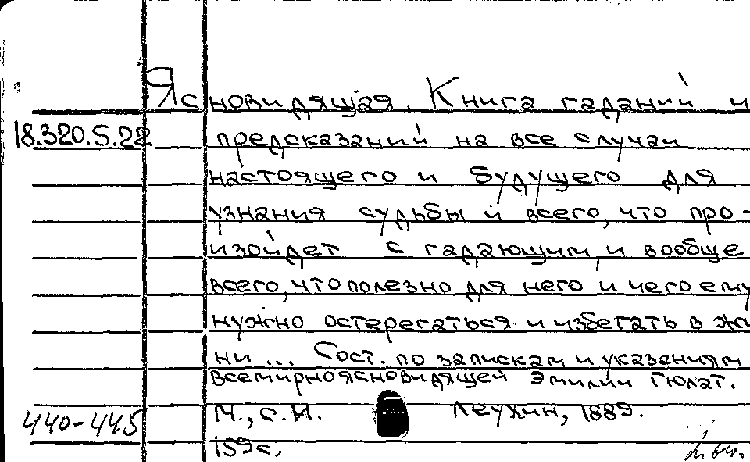 Ясновидящая. Книга гаданий и
18.320.5.22 предсказаний на все случаи
настоящего и будущего для
узнания судьбы и всего, что про-
изойдет с гадающим, и вообще
всего, что полезно для него и чего ему
нужно остерегаться и избегать в жи
ни... Сост. по запискам и указаниям
всемирноясновидящей Эмилии Гюлат.
440-445 М., С.И. Леухин, 1889.
159с.